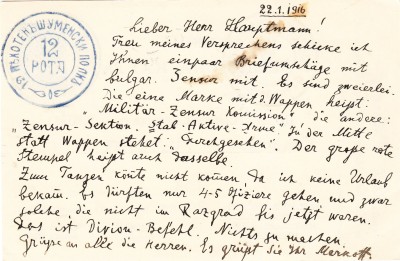 22.1.1916
19 ПѢХОТЕНЪ ШУМЕНСКИ ПОЛКЪ
12
РОТА
Lieber Herr Hauptmann!
Treu meines Versprechens schicke ich
Ihnen einpaar Briefumschäge mit
bulgar. Zensur mit. Es sind zweierlei-
die eine Marke mit d. Wappen heißt:
"Militär-Zensur Komission" die andere:
"Zensur-Sektion, Stab-Aktive-Armee". In der Mitte
statt Wappen stehet: "Durchgesehen". Der große rote
Stempel heißt auch dasselbe.
Zum Tanzen könte nicht kommen, da ich keine Urlaub
bekam. Es dürften nur 4-5 Ofiziere gehen und zwar
solche, die nicht im Razgrad bis jetzt waren.
Das ist Divion-Befehl. Nichts zu machen.
Grüße an alle die Herren. Es grüßt Sie Ihr Markoff